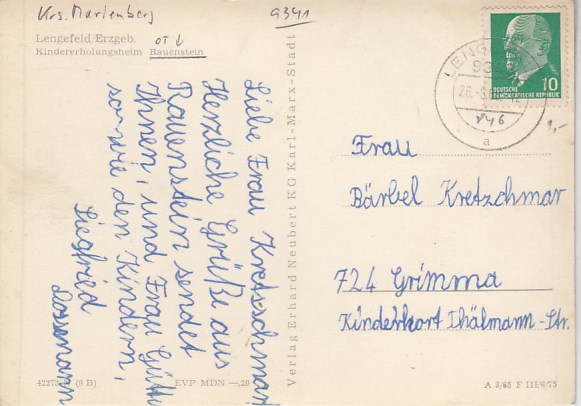 Krs. Marienberg
9341
Lengefeld/Erzgeb.
OT
Kindererholungsheim Rauenstein
Liebe Frau Kretzschmar
Herzliche Grüße aus
Rauenstein sendet
Ihnen, und Frau
sowie den Kindern,
Siegfried
Verlag Erhard Neubert KG Karl-Marx-Stadt
DEUTSCHE
DEMOKRATISCHE REPUBLIK
10
LENG
a
1,-
Frau
Bärbel Kretzchmar
724 Grimma
Kinderhort Thälmann-Str.
(9 B) EVP MDN —,20
A 3/65 F III/6/75